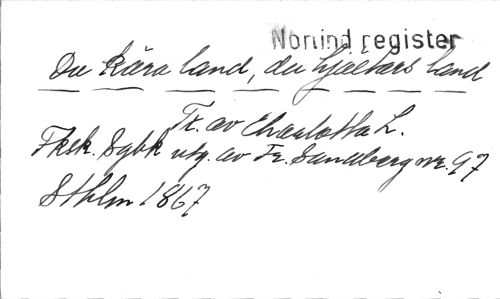 Norlind register
Du kära land, du hjältars land
Tr. av Charlotta L.
Fksk. Sgbk utg. av Fr. Sandberg nr. 97
Sthlm 1867